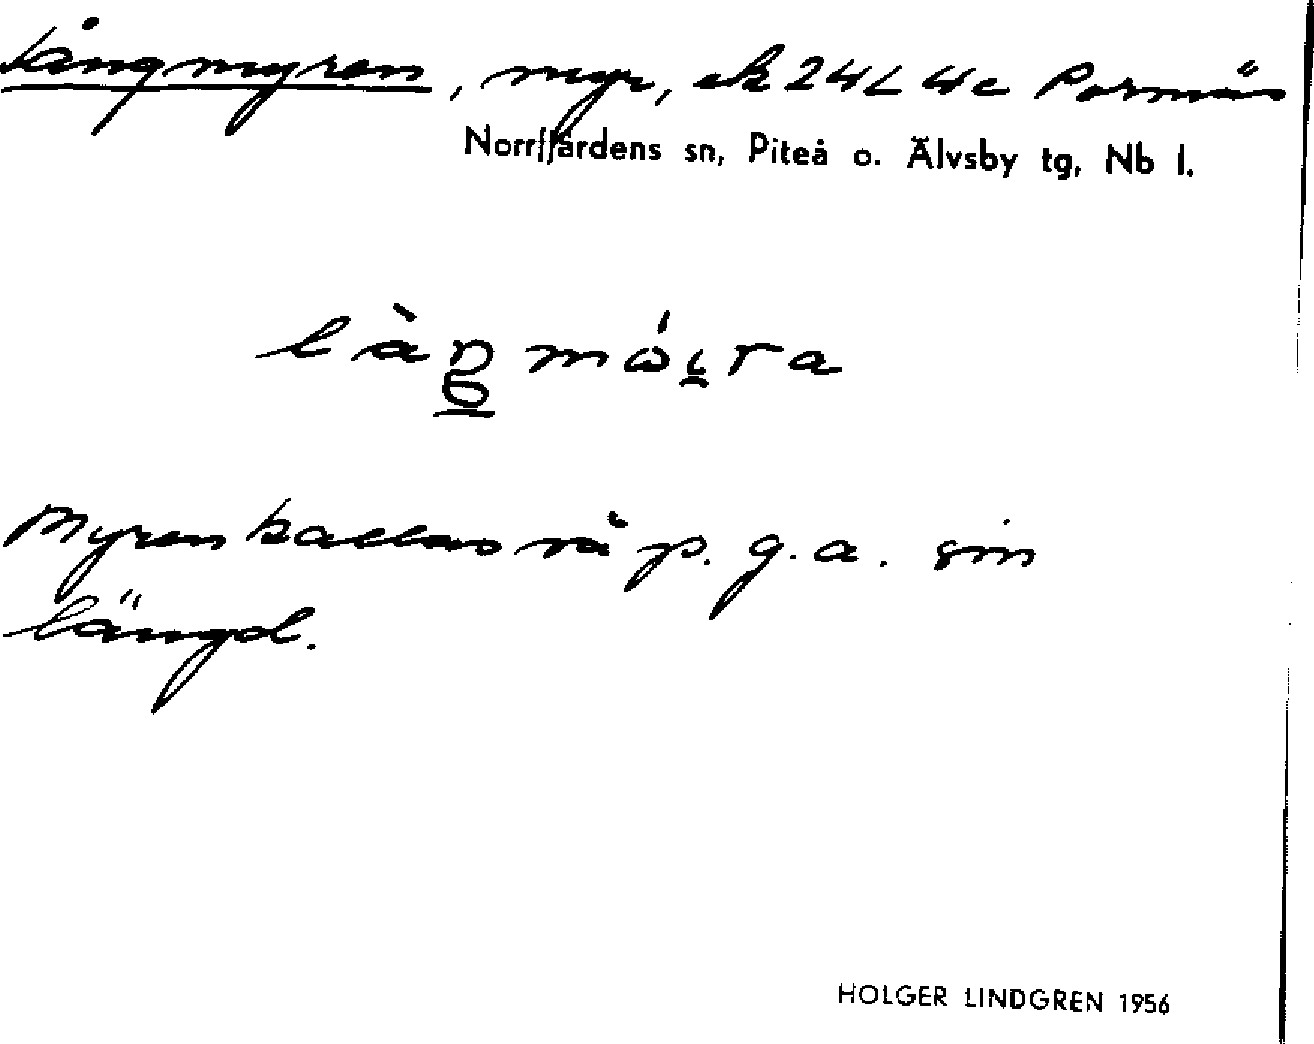 Långmyren, myr, ek 24L 4c Pornäs
Norrfjärdens sn, Piteå o. Älvsby tg, Nb l.
Myren kallas så p. g. a. sin
längd.
HOLGER LINDGREN 1956